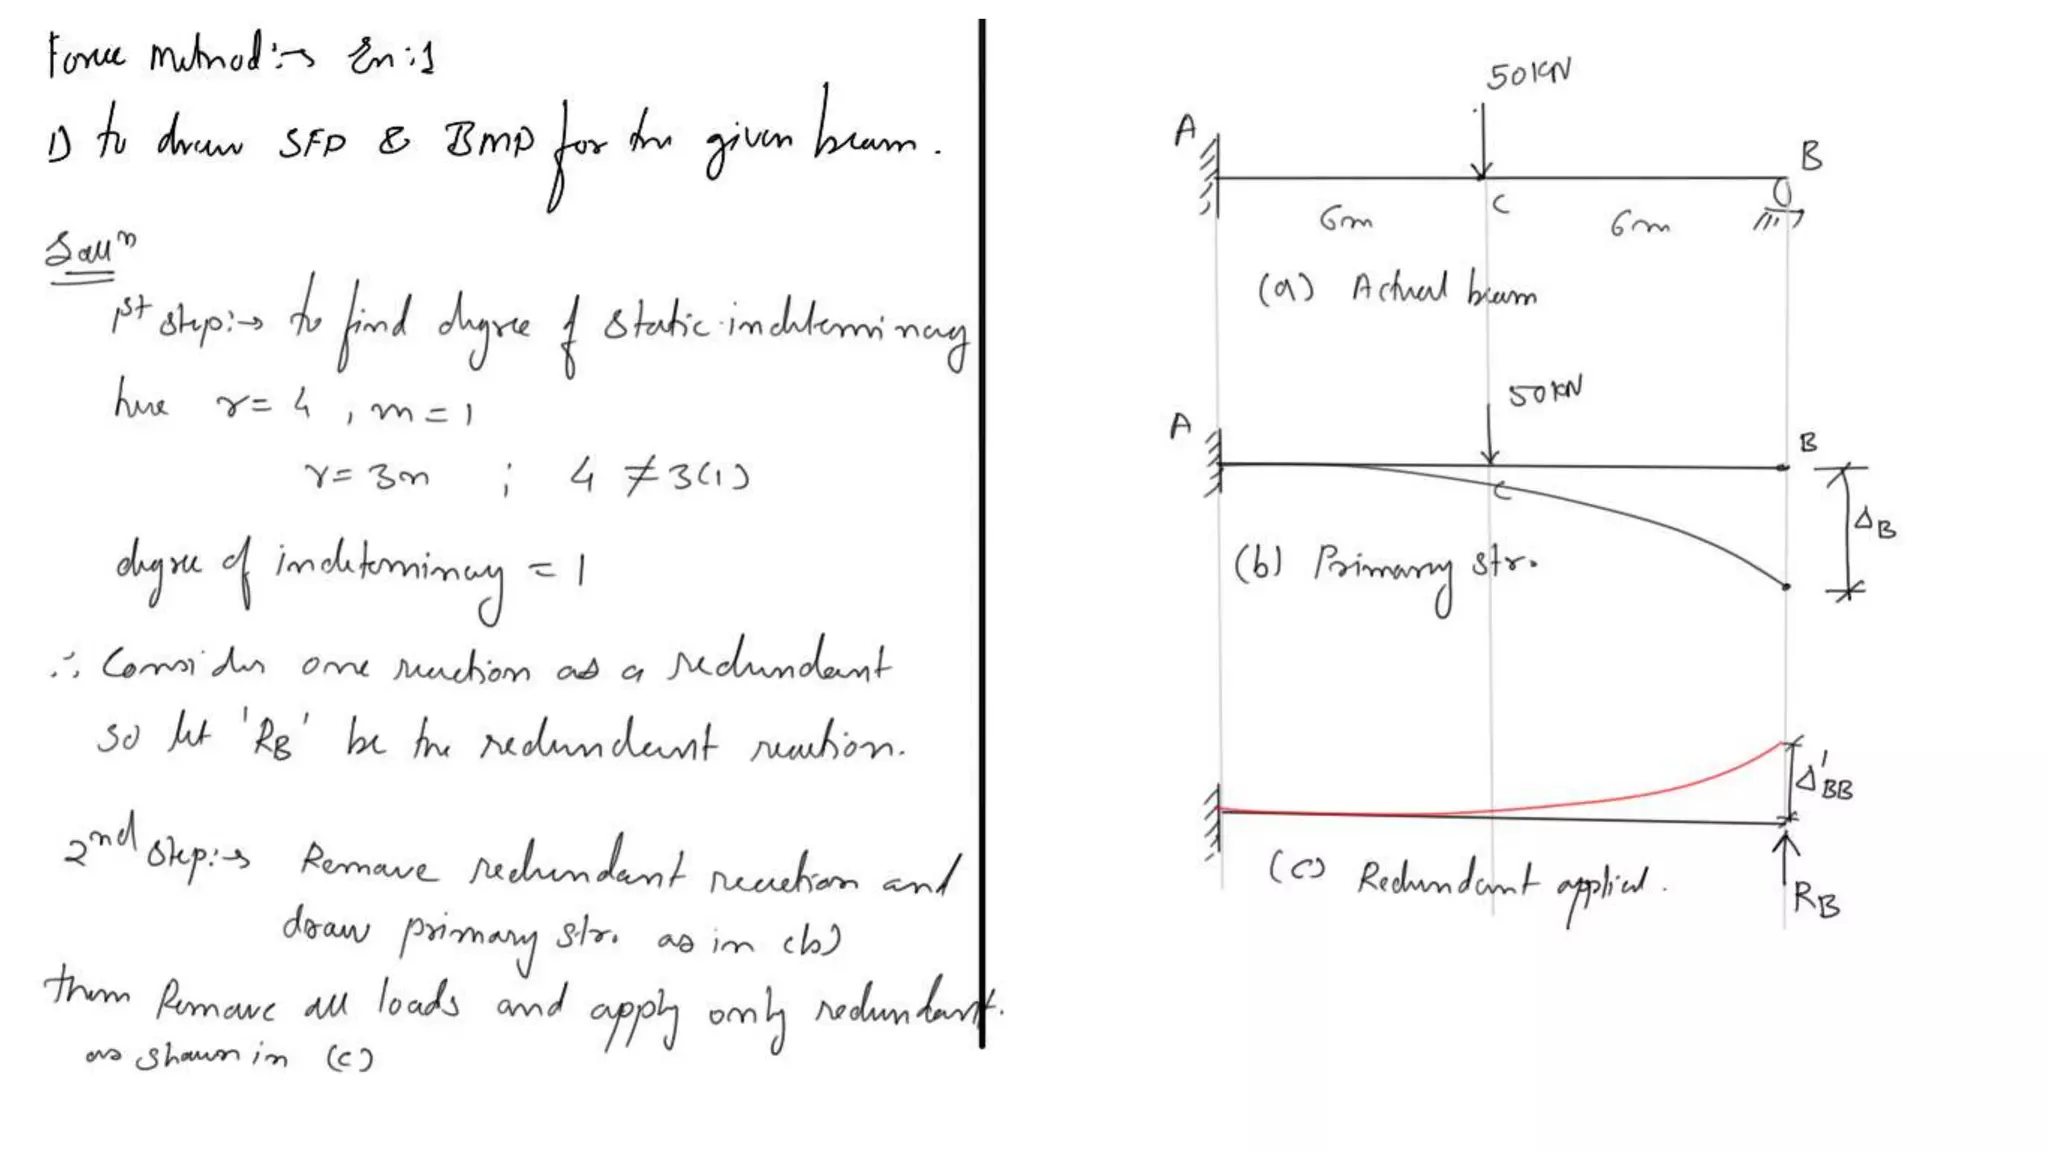 Force Method:→ Ex:1
1) to draw SFD & BMD for the given beam.
Soluⁿ
1st step:→ to find degree of static indeterminacy
here r=4 , n=1
r=3n ; 4 ≠ 3(1)
degree of indeterminacy = 1
∴ Consider one reaction as a redundant
so let 'RB' be the redundant reaction.
2nd step:→ Remove redundant reaction and
draw primary str. as in (b)
then Remove all loads and apply only redundant.
as shown in (c)
50KN
A
B
C
6m
6m
(a) Actual beam
50KN
A
B
C
ΔB
(b) Primary str.
Δ'BB
(c) Redundant applied.
RB